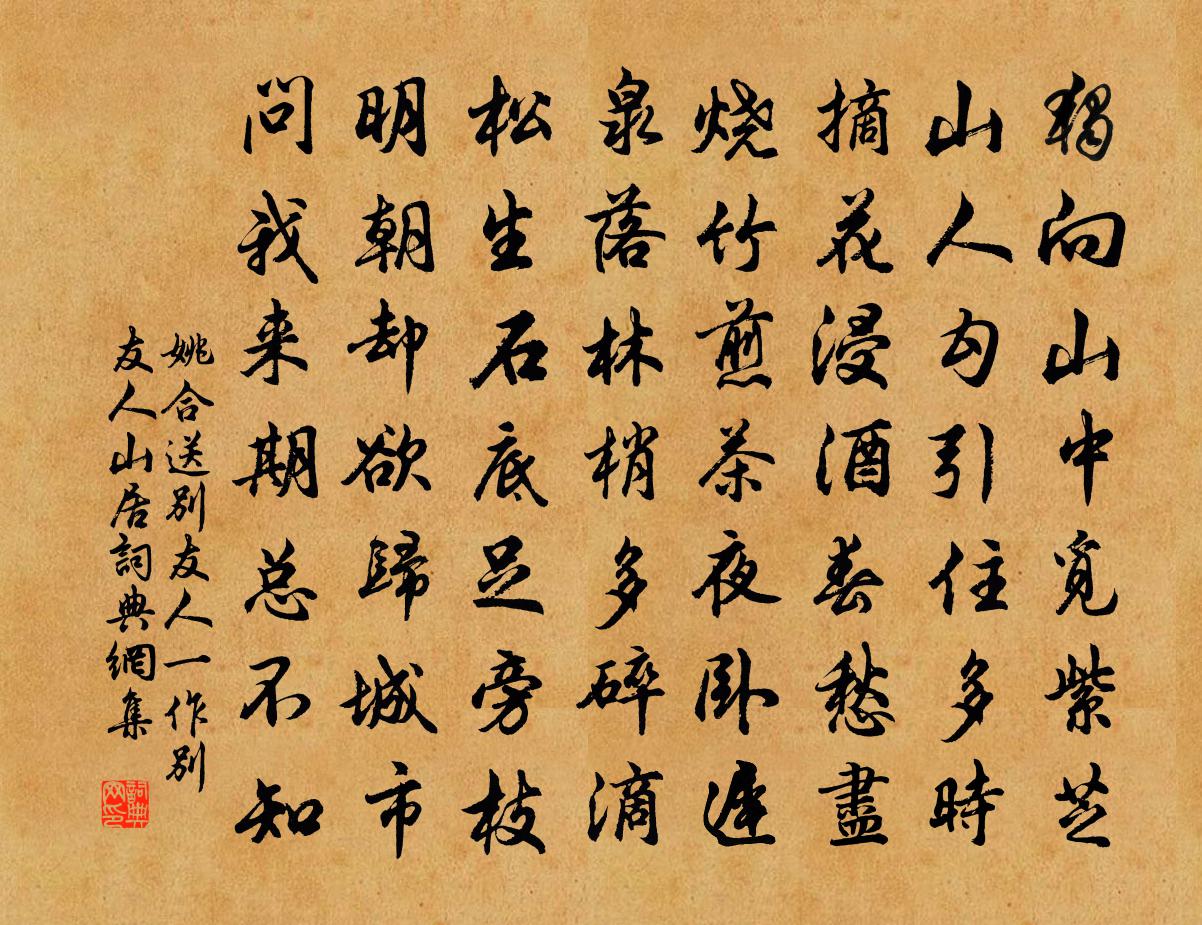 獨向山中覓紫芝
山人勾引住多時
摘花浸酒春愁盡
燒竹煎茶夜臥遲
泉落林梢多碎滴
松生石底足旁枝
明朝却欲歸城市
問我来期总不知
姚合送别友人一作别
友人山居詞典網集
詞典
网印